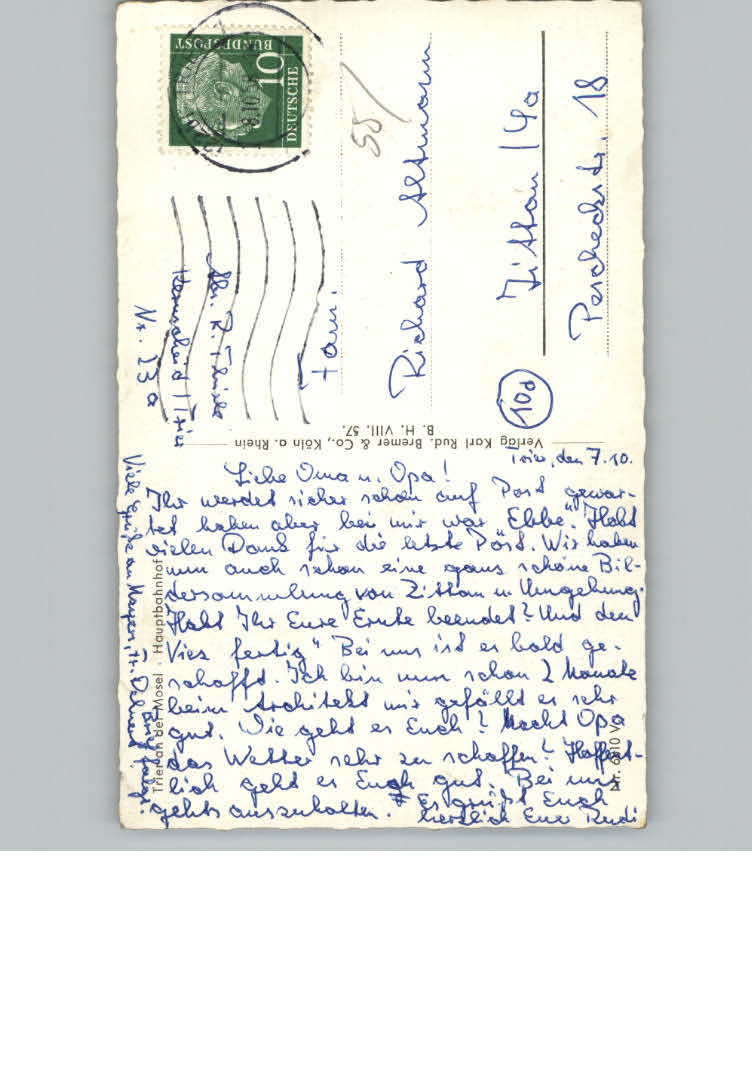 Trier, den 7.10.
Liebe Oma u. Opa!
Ihr werdet sicher schon auf Post gewar-
tet haben aber bei mir war "Ebbe". Habt
vielen Dank für die letzte Post. Wir haben
nun auch schon eine ganz schöne Bil-
dersammlung von Zittau u. Umgebung.
Habt Ihr Eure Ernte beendet? Und den
Viez fertig" Bei uns ist es bald ge-
schafft. Ich bin nun schon 2 Monate
beim Architekt mir gefällt es sehr
gut. Wie geht es Euch? Macht Opa
das Wetter sehr zu schaffen? Hoffent-
lich geht es Euch gut. Bei uns
gehts auszuhalten. Es grüßt Euch
herzlich Euer Rudi
Viele Grüße an
Brief folgt.
Trier an der Mosel · Hauptbahnhof
Verlag Karl Rud. Bremer & Co., Köln a. Rhein
B. H. VIII. 57.
DEUTSCHE
BUNDESPOST
10
58/
Fam.
Richard Altmann
Zittau
Pescheckstr. 18
10a
Abs. R.
Trier
Nr. 23a